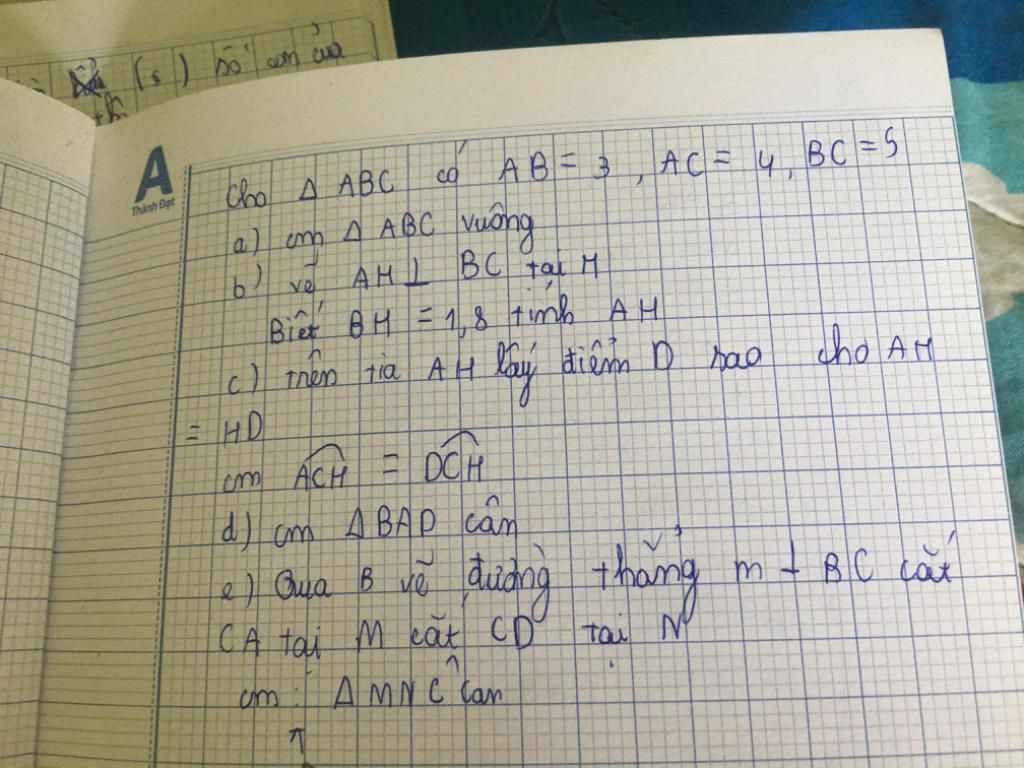 (s) số em của
A
Thành Đạt
Cho Δ ABC có AB = 3, AC = 4, BC = 5
a) cm Δ ABC vuông
b) vẽ AH ⊥ BC tại H
Biết BH = 1,8 tính AH
c) trên tia AH lấy điểm D sao cho AH
= HD
cm ACH = DCH
d) cm ΔBAD cân
e) Qua B vẽ đường thẳng m ⊥ BC cắt
CA tại M cắt CD tại N
cm : Δ MNC cân